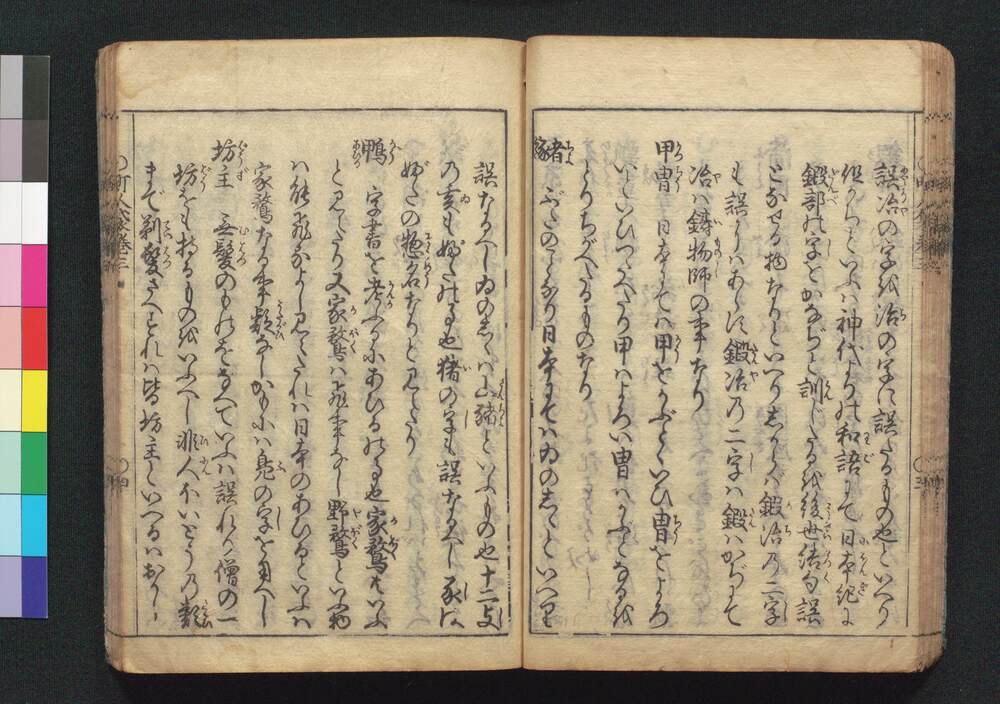 誤冶の字を治の字に誤たるもの也といへり
但かちといふハ神代よりの和語にて日本紀に
鍛部の字をかなぢと訓じたるを後世結句誤
とかせる物なりといへりしからバ鍛冶乃二字
も誤りハあらじ鍛冶乃二字ハ鍛ハかぢにて
冶ハ鋳物師の事なり
甲冑 日本にてハ甲をかぶといひ冑をよろ
いといひつたへたり甲ハよろい冑ハかぶとなるを
とりちがへたるものなり
猪 ぶたのことなり日本にてハゐのしゝといへり
誤なるへしゐのしゝハ山猪といふもの也十二支
乃亥もぶたの事也猪の字も誤なるへし豕は
ぶたの惣名なりと見へたり
鴨 字書を考ふるにあひるの事也家鶩をいふ
と見へたり又家鶩ハ飛事なし野鶩といふ物
ハ能飛ぶよし見へたれハ日本のあひるといふハ
家鶩なる事疑なしかもにハ鳧の字を用へし
坊主 無髪のものをなへていふハ誤れり僧の一
坊をも持るものをいふへし非人ぶいどうの類
まで剃髪さへすれハ皆坊主といへるハおかし
町人袋巻三 四